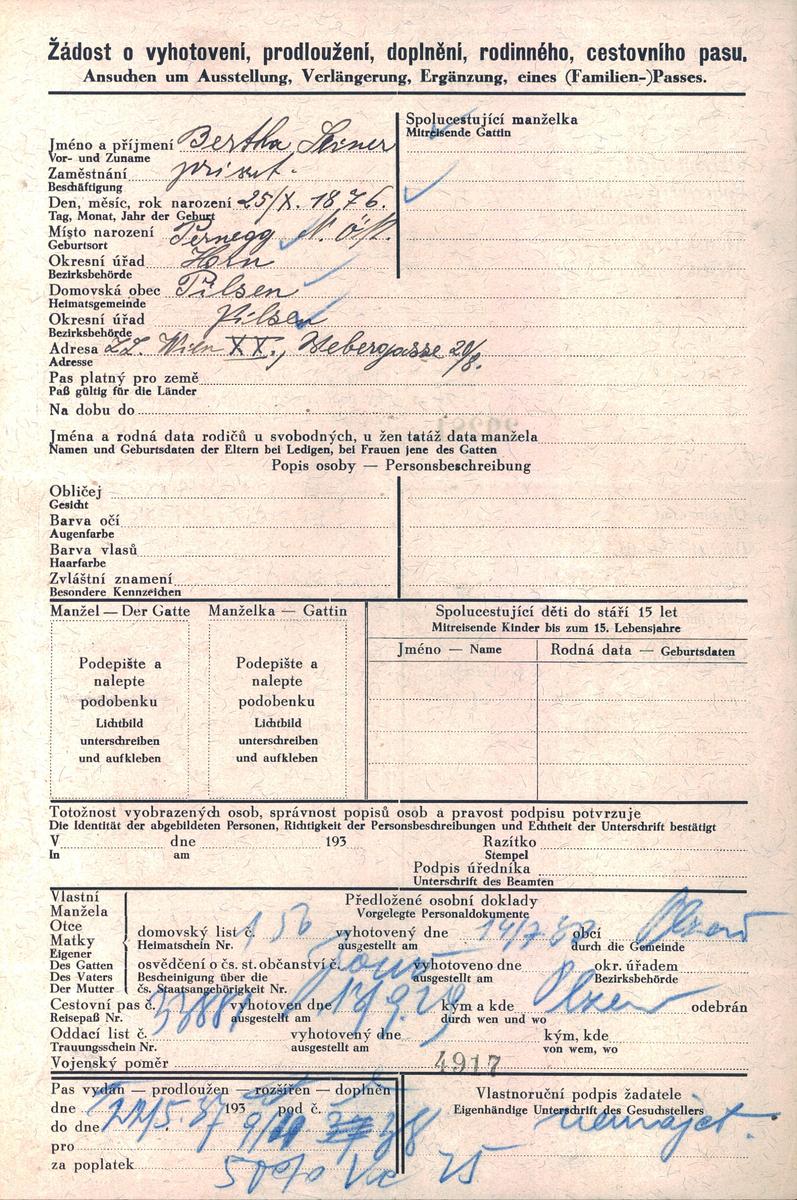 Žádost o vyhotovení, prodloužení, doplnění, rodinného, cestovního pasu.
Ansuchen um Ausstellung, Verlängerung, Ergänzung, eines (Familien-)Passes.
Jméno a příjmení Bertha
Vor- und Zuname
Zaměstnání privat.
Beschäftigung
Den, měsíc, rok narození 25/X. 1876.
Tag, Monat, Jahr der Geburt
Místo narození Pernegg N. Öst.
Geburtsort
Okresní úřad Horn
Bezirksbehörde
Domovská obec Pilsen
Heimatsgemeinde
Okresní úřad Pilsen
Bezirksbehörde
Adresa Wien XX., Webergasse 20/8.
Adresse
Spolucestující manželka
Mitreisende Gattin
Pas platný pro země
Paß gültig für die Länder
Na dobu do
Jména a rodná data rodičů u svobodných, u žen tatáž data manžela
Namen und Geburtsdaten der Eltern bei Ledigen, bei Frauen jene des Gatten
Popis osoby — Personsbeschreibung
Obličej
Gesicht
Barva očí
Augenfarbe
Barva vlasů
Haarfarbe
Zvláštní znamení
Besondere Kennzeichen
Manžel — Der Gatte Manželka — Gattin
Podepište a
nalepte
podobenku
Lichtbild
unterschreiben
und aufkleben
Podepište a
nalepte
podobenku
Lichtbild
unterschreiben
und aufkleben
Spolucestující děti do stáří 15 let
Mitreisende Kinder bis zum 15. Lebensjahre
Jméno — Name Rodná data — Geburtsdaten
Totožnost vyobrazených osob, správnost popisů osob a pravost podpisu potvrzuje
Die Identität der abgebildeten Personen, Richtigkeit der Personsbeschreibungen und Echtheit der Unterschrift bestätigt
V dne 193 Razítko
In am Stempel
Podpis úředníka
Unterschrift des Beamten
Vlastní
Manžela
Otce
Matky
Eigener
Des Gatten
Des Vaters
Der Mutter
Předložené osobní doklady
Vorgelegte Personaldokumente
domovský list č. vyhotovený dne obcí Plzeň
Heimatschein Nr. ausgestellt am durch die Gemeinde
osvědčení o čs. st. občanství č. vyhotoveno dne okr. úřadem
Bescheinigung über die ausgestellt am Bezirksbehörde
čs. Staatsangehörigkeit Nr.
Cestovní pas č. vyhotoven dne kým a kde Plzeň odebrán
Reisepaß Nr. ausgestellt am durch wen und wo
Oddací list č. vyhotovený dne kým, kde
Trauungsschein Nr. ausgestellt am von wem, wo
Vojenský poměr 4917
Pas vydán — prodloužen — rozšířen — doplněn
dne 193 pod č.
do dne
pro
za poplatek
Vlastnoruční podpis žadatele
Eigenhändige Unterschrift des Gesuchstellers